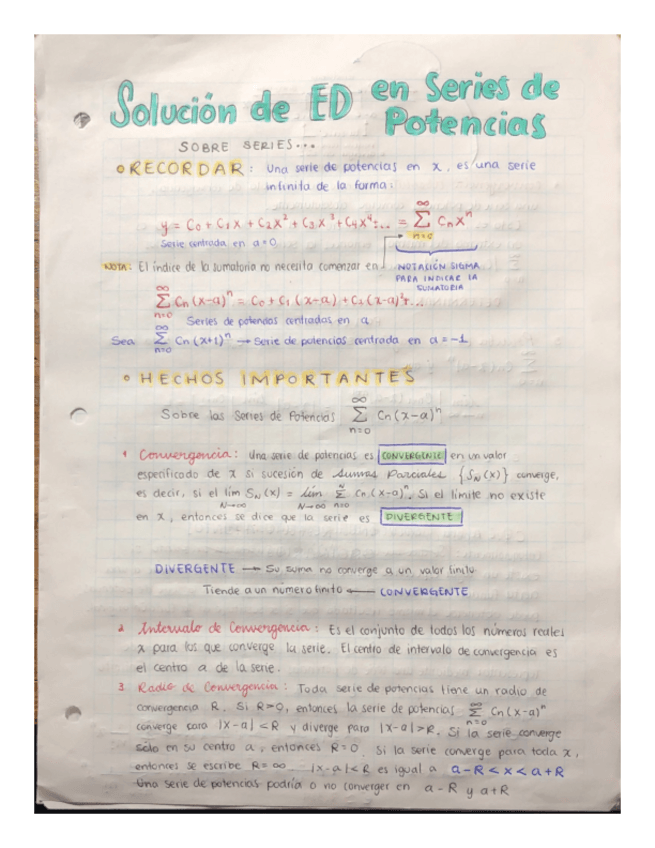 Solución de ED en Series de
Potencias
SOBRE SERIES...
RECORDAR: Una serie de potencias en x, es una serie
infinita de la forma:
y = C₀ + C₁x + C₂x² + C₃x³ + C₄x⁴+... = ∑_{n=0}^{∞} Cₙxⁿ
Serie centrada en a=0
NOTA: El índice de la sumatoria no necesita comenzar en
NOTACIÓN SIGMA
PARA INDICAR LA
SUMATORIA
∑_{n=0}^{∞} Cₙ(x-a)ⁿ = C₀ + C₁(x-a) + C₂(x-a)²+...
Series de potencias centradas en a
Sea ∑_{n=0}^{∞} Cₙ(x+1)ⁿ → Serie de potencias centrada en a = -1
HECHOS IMPORTANTES
Sobre las Series de Potencias ∑_{n=0}^{∞} Cₙ(x-a)ⁿ
1 Convergencia: Una serie de potencias es CONVERGENTE en un valor
especificado de x si sucesión de sumas Parciales {S_N(x)} converge,
es decir, si el lim_{N→∞} S_N(x) = lim_{N→∞} ∑_{n=0}^{N} Cₙ(x-a)ⁿ. Si el límite no existe
en x, entonces se dice que la serie es DIVERGENTE
DIVERGENTE → Su suma no converge a un valor finito
Tiende a un número finito ← CONVERGENTE
2 Intervalo de Convergencia: Es el conjunto de todos los números reales
x para los que converge la serie. El centro de intervalo de convergencia es
el centro a de la serie.
3 Radio de Convergencia: Toda serie de potencias tiene un radio de
convergencia R. Si R>0, entonces la serie de potencias ∑_{n=0}^{∞} Cₙ(x-a)ⁿ
converge para |x-a|<R y diverge para |x-a|>R. Si la serie converge
sólo en su centro a, entonces R=0. Si la serie converge para toda x,
entonces se escribe R=∞ |x-a|<R es igual a a-R<x<a+R
Una serie de potencias podría o no converger en a-R y a+R